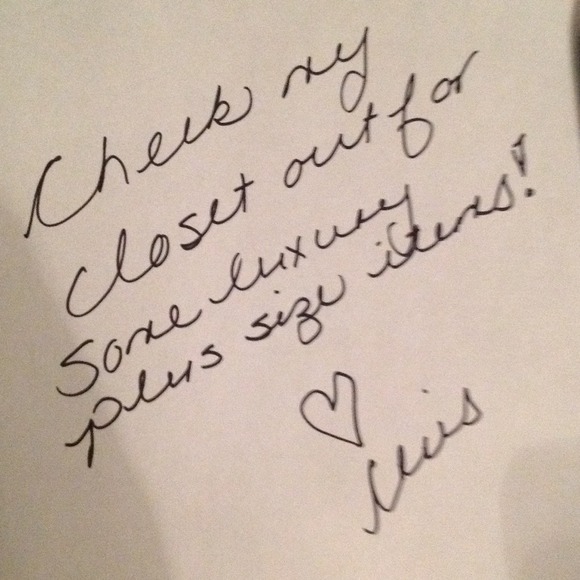 Check my
closet out for
some luxury
plus size items!
♡